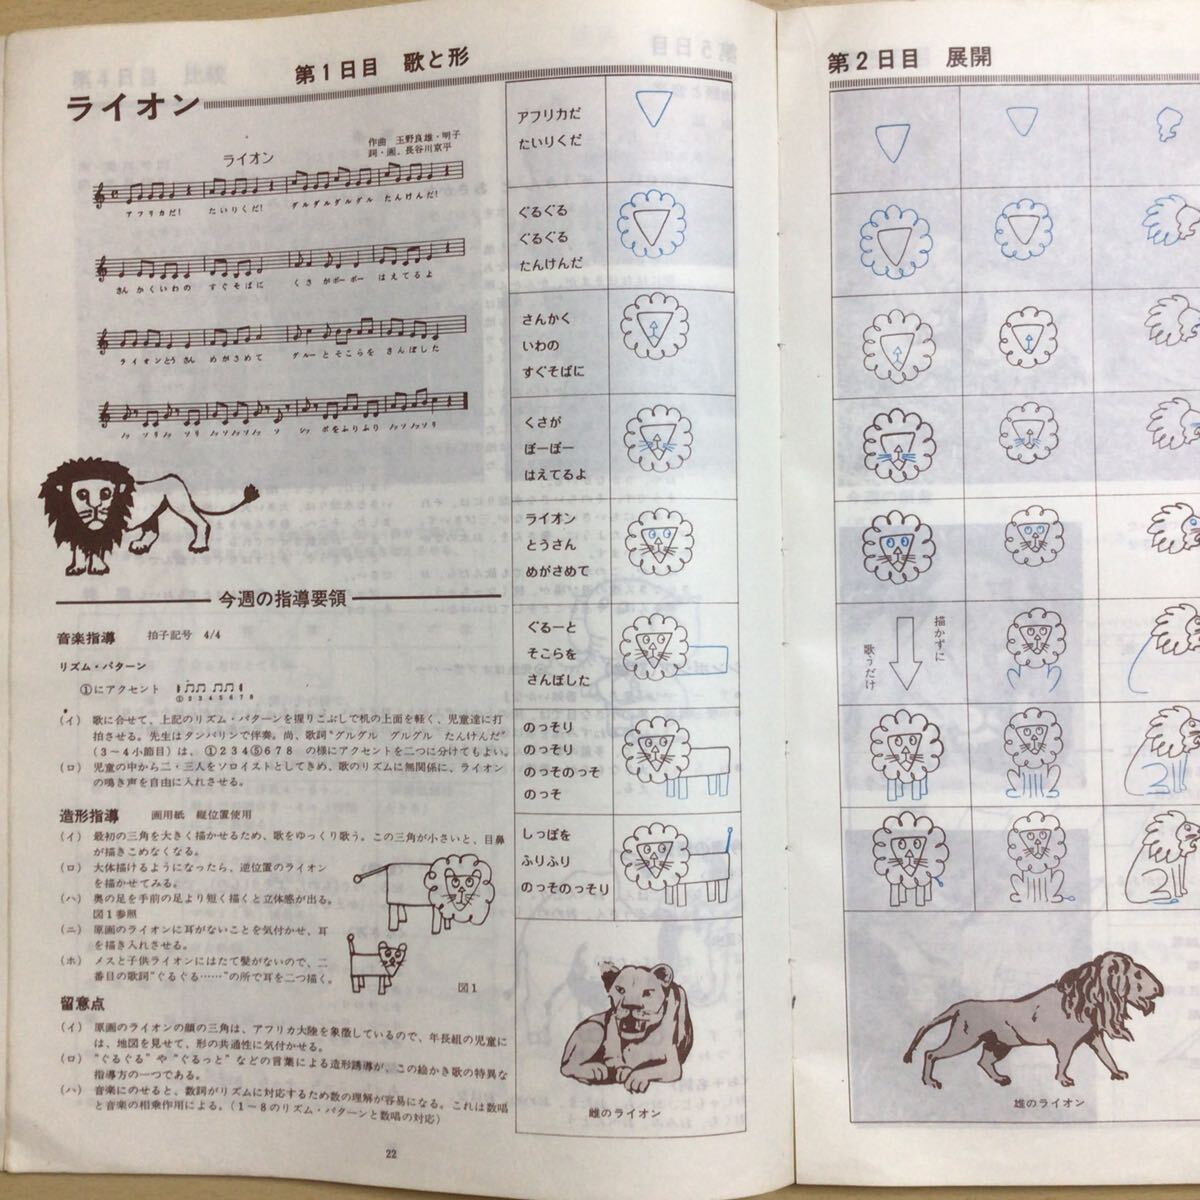 第1日目　歌と形
ライオン
ライオン
作曲　玉野良雄・明子
詞・画、長谷川京平
アフリカだ！　たいりくだ！　グルグルグルグル　たんけんだ！
さんかくいわの　すぐそばに　くさがボーボー　はえてるよ
ライオンとうさん　めがさめて　グルーとそこらを　さんぽした
ノッソリノッソリ　ノッソノッソ　シッポをふりふり　ノッソノッソリ
今週の指導要領
音楽指導　拍子記号　4/4
リズム・パターン
①にアクセント
①2 3 4 5 6 7 8
(イ)　歌に合せて、上記のリズム・パターンを握りこぶしで机の上面を軽く、児童達に打
拍させる。先生はタンバリンで伴奏。尚、歌詞“グルグル　グルグル　たんけんだ”
(3〜4小節目)は、①234⑤678　の様にアクセントを二つに分けてもよい。
(ロ)　児童の中から二・三人をソロイストとしてきめ、歌のリズムに無関係に、ライオン
の鳴き声を自由に入れさせる。
造形指導　画用紙　縦位置使用
(イ)　最初の三角を大きく描かせるため、歌をゆっくり歌う。この三角が小さいと、目鼻
が描きこめなくなる。
(ロ)　大体描けるようになったら、逆位置のライオン
を描かせてみる。
(ハ)　奥の足を手前の足より短く描くと立体感が出る。
図1参照
(ニ)　原画のライオンに耳がないことを気付かせ、耳
を描き入れさせる。
(ホ)　メスと子供ライオンにはたて髪がないので、二
番目の歌詞“ぐるぐる……”の所で耳を二つ描く。
図1
留意点
(イ)　原画のライオンの顔の三角は、アフリカ大陸を象徴しているので、年長組の児童に
は、地図を見せて、形の共通性に気付かせる。
(ロ)　“ぐるぐる”や“ぐるっと”などの言葉による造形誘導が、この絵かき歌の特異な
指導方の一つである。
(ハ)　音楽にのせると、数詞がリズムに対応するため数の理解が容易になる。これは数唱
と音楽の相乗作用による。(1〜8のリズム・パターンと数唱の対応)
22
アフリカだ
たいりくだ
ぐるぐる
ぐるぐる
たんけんだ
さんかく
いわの
すぐそばに
くさが
ぼーぼー
はえてるよ
ライオン
とうさん
めがさめて
ぐるーと
そこらを
さんぽした
のっそり
のっそり
のっそのっそ
のっそ
しっぽを
ふりふり
のっそのっそり
雌のライオン
第2日目　展開
描かずに
歌うだけ
雄のライオン